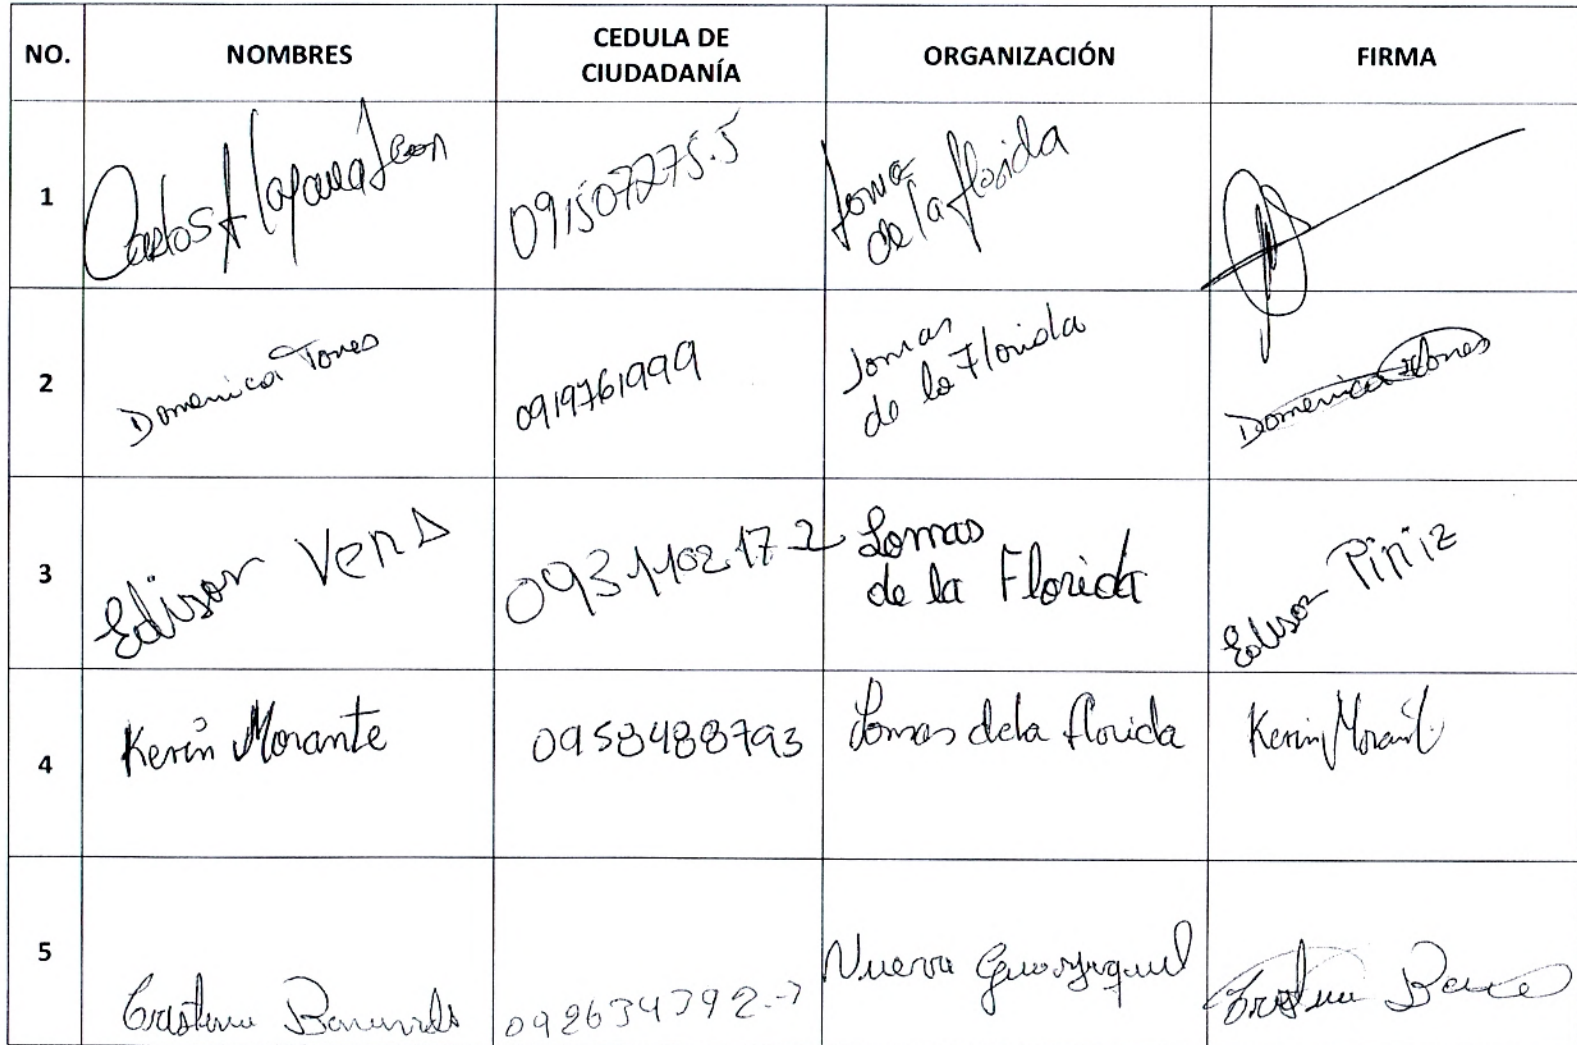 NO. NOMBRES CEDULA DE CIUDADANÍA ORGANIZACIÓN FIRMA
1 Carlos 091507275.5 Loma de la florida
2 Domenica Torres 0919761999 Lomas de la Florida Domenica Torres
3 Edison Vera 093110217-2 Lomas de la Florida Edison
4 Kevin Morante 0958488793 Lomas de la florida Kevin Morant
5 Cristina Nueva Guayaquil Cristina